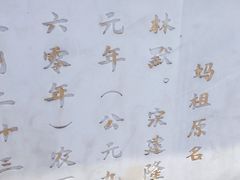 妈祖原名
林默。宋建隆
元年（公元九
六零年）农
月二十三